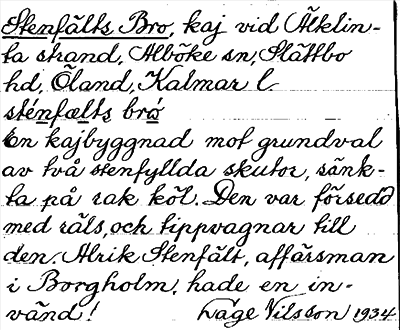 Stenfälts Bro, kaj vid Äleklin-
ta strand, Alböke sn, Slättbo
hd, Öland, Kalmar l.
sténfælts brö́
En kajbyggnad mot grundval
av två stenfyllda skutor, sänk-
ta på rak köl. Den var försedd
med räls, och tippvagnar till
den. Alrik Stenfält, affärsman
i Borgholm, hade en in-
vänd! Våge Nilsson 1934